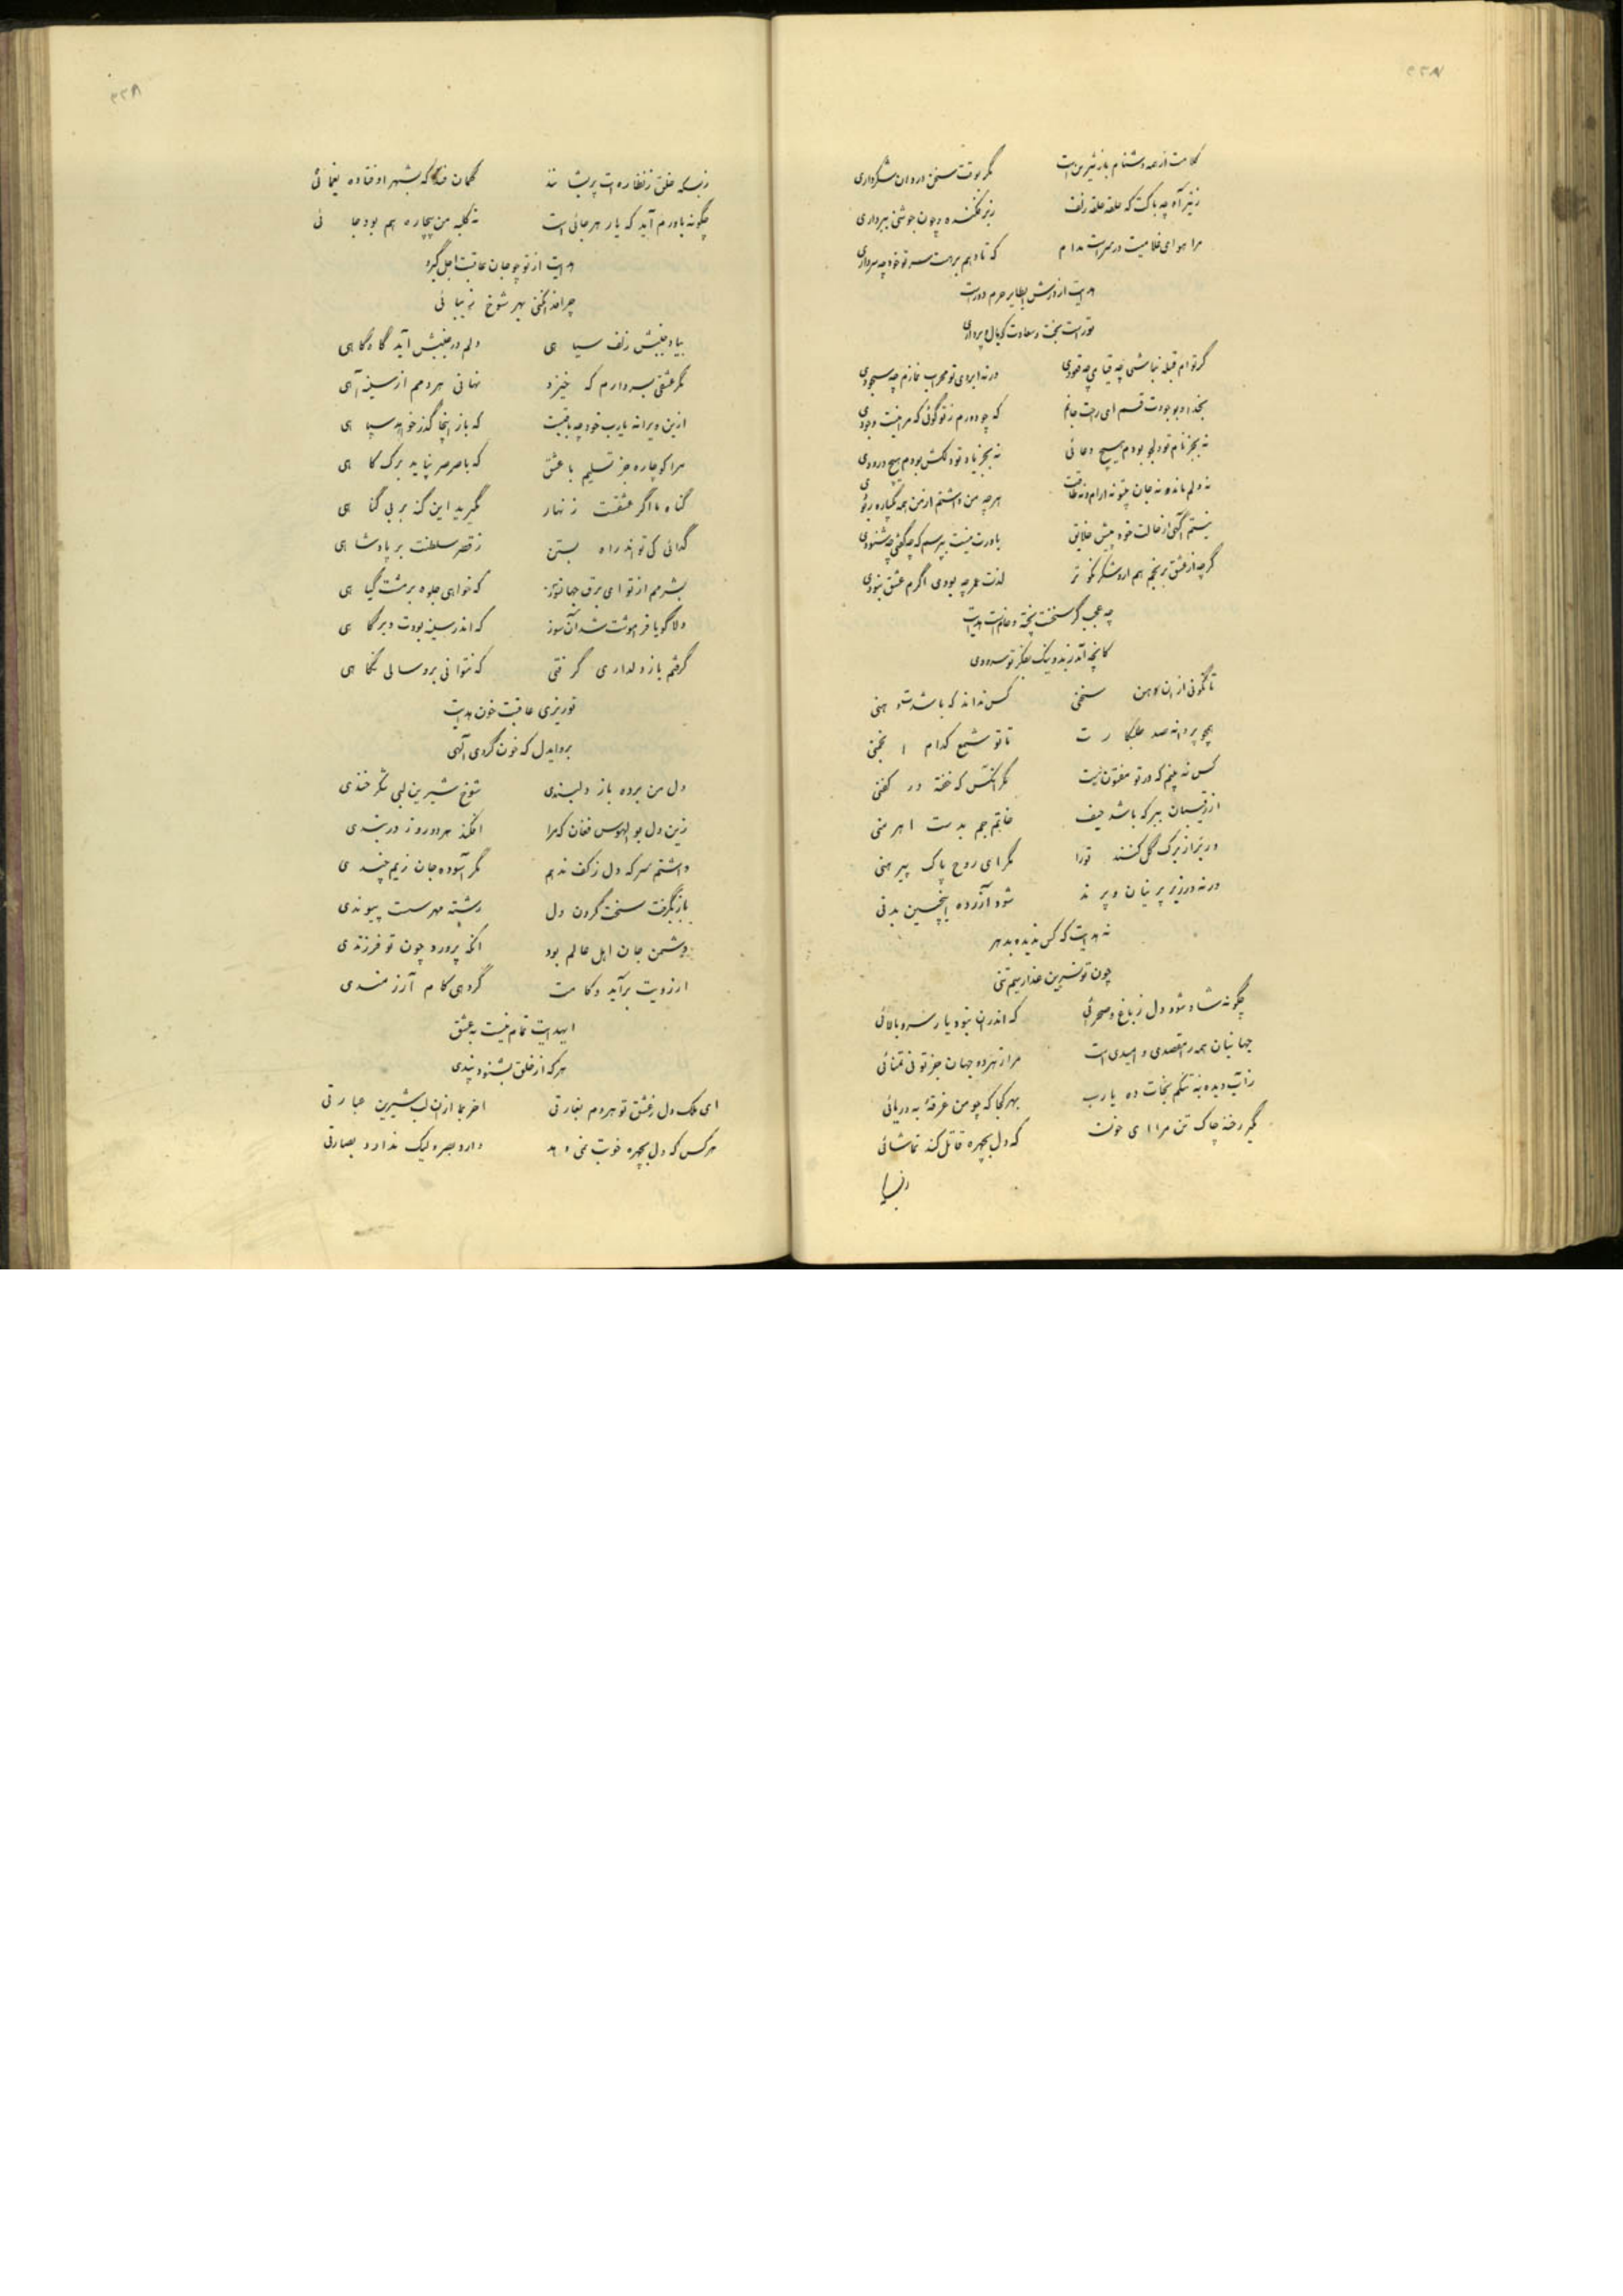 کلامت از همه دشنام باز شیرین است مگر بوقت سخن در دهان شکرداری
ز تیر آه چه باکت که حلقه حلقه زلف زبر فکنده و چون جوشنی ببرداری
مرا هوای غلامیت در سر است مدام که تا دهم برهت سر تو خود چه سرداری
هدایت از درش ای طایر حرم دور است
تو راست بخت و سعادت که بال و پرداری
گر توام قبله نباشی چه قیامی چه قعودی ورنه ابروی تو محراب نمازم چه سجودی
بخدا و بوجودت قسم ای راحت جانم که چو دورم ز تو گوئی که مرا نیست وجودی
نه بجز نام تو در لب بودم هیچ دعائی نه بجز یاد تو در بودم هیچ درودی
نه دلم ماند و نه جان بیتو نه ارام و نه طاقت هرچه من داشتم از من همه یکباره ربودی
نیستم آگهی از حالت خود پیش خلایق باورت نیست بپرسم که چه گفتی چه شنودی
گرچه از عشق برنجم هم ازو شکر نکوتر لذت عمر چه بودی اگرم عشق نبودی
چه عجب گر سخنت پخته و است هدایت
کانچه آمد بفکر تو سرودی
تا نگوئی از ان دهن سخنی کس نداند که باشدت دهنی
همچو پروانه صد طلبکارت تا تو شمع کدام انجمنی
کس نه بینم که در تو مفتون نیست مگر آنکس که خفته در کفنی
از رقیبان ببر که باشد حیف خاتم جم بدست اهرمنی
بر تر از برک گل کنند تورا مگر ای روح پاک پیرهنی
ورنه در زیر پرنیان و پرند شود آزرده اینچنین بدنی
نه هدایت که کس ندیده بدهر
چون تو نسرین عذار سیم تنی
چگونه شاد شود دل ز باغ و صحرائی که اندران نبود یار سرو بالائی
جهانیان همه را مقصدی و امیدی است مرا ز هر دو جهان جز تو نی تمنائی
ز آب دیده به تنگم نجات ده یارب بهر کجا که چو من غرقهٔ به دریائی
مگیر رخنه چاک تن مرا ای خون که دل بچهره قاتل کند تماشائی
زبسکه
زبسکه خلق ز نظاره‌ات پریشانند گمان که بشهر اوفتاده یغمائی
چگونه باورم آید که یار هرجائی است نه کلبه من بیچاره هم بود جائی
هدایت از تو چو جان عاقبت اجل گیرد
چرا فدا نکنی بهر شوخ زیبائی
بیاد جنبش زلف سیاهی دلم در جنبش آید گاه گاهی
مگر عشقی بسر دارم که خیزد نهانی هر دمم از سینه آهی
ازین ویرانه یارب خود چه باقیست که باز اینجا گذر خواهد سپاهی
مرا کو چاره جز تسلیم با عشق که با صرصر نپاید برک کاهی
گناه ما اگر عشقست زنهار مگیرید این گنه بر بی گناهی
گدائی کی تواند راه بستن ز قصر سلطنت بر پادشاهی
بشرمم از تو ای برق جهانسوز که خواهی جلوه بر مشت گیاهی
دلا گویا فراموشت شد آن سوز که اندر سینه بودت دیرگاهی
گرفتم باز دلداری گرفتی که نتوانی برو سالی نگاهی
تو ریزی عاقبت خون هدایت
برو ایدل که خون گردی آلهی
دل من برده باز دلبندی شوخ شیرین لبی شکرخندی
زین دل بوالهوس فغان که مرا افکند هر دو روز در بندی
داشتم سر که دل ز کف ندهم مگر آسوده جان زیم چندی
باز بگرفت سخت گردن دل رشته مهر سست پیوندی
دشمن جان اهل عالم بود انکه پرورد چون تو فرزندی
ارزویت برآید و کامت گر دهی کام آرزمندی
ایهدایت تمام نیست به عشق
هر که از خلق بشنود پندی
ای ملک دل ز عشق تو هردم بغارتی اخر بما ازان لب شیرین عبارتی
هر کس که دل بچهره خوبت نمی دهد دارد بصر ولیک ندارد بصارتی